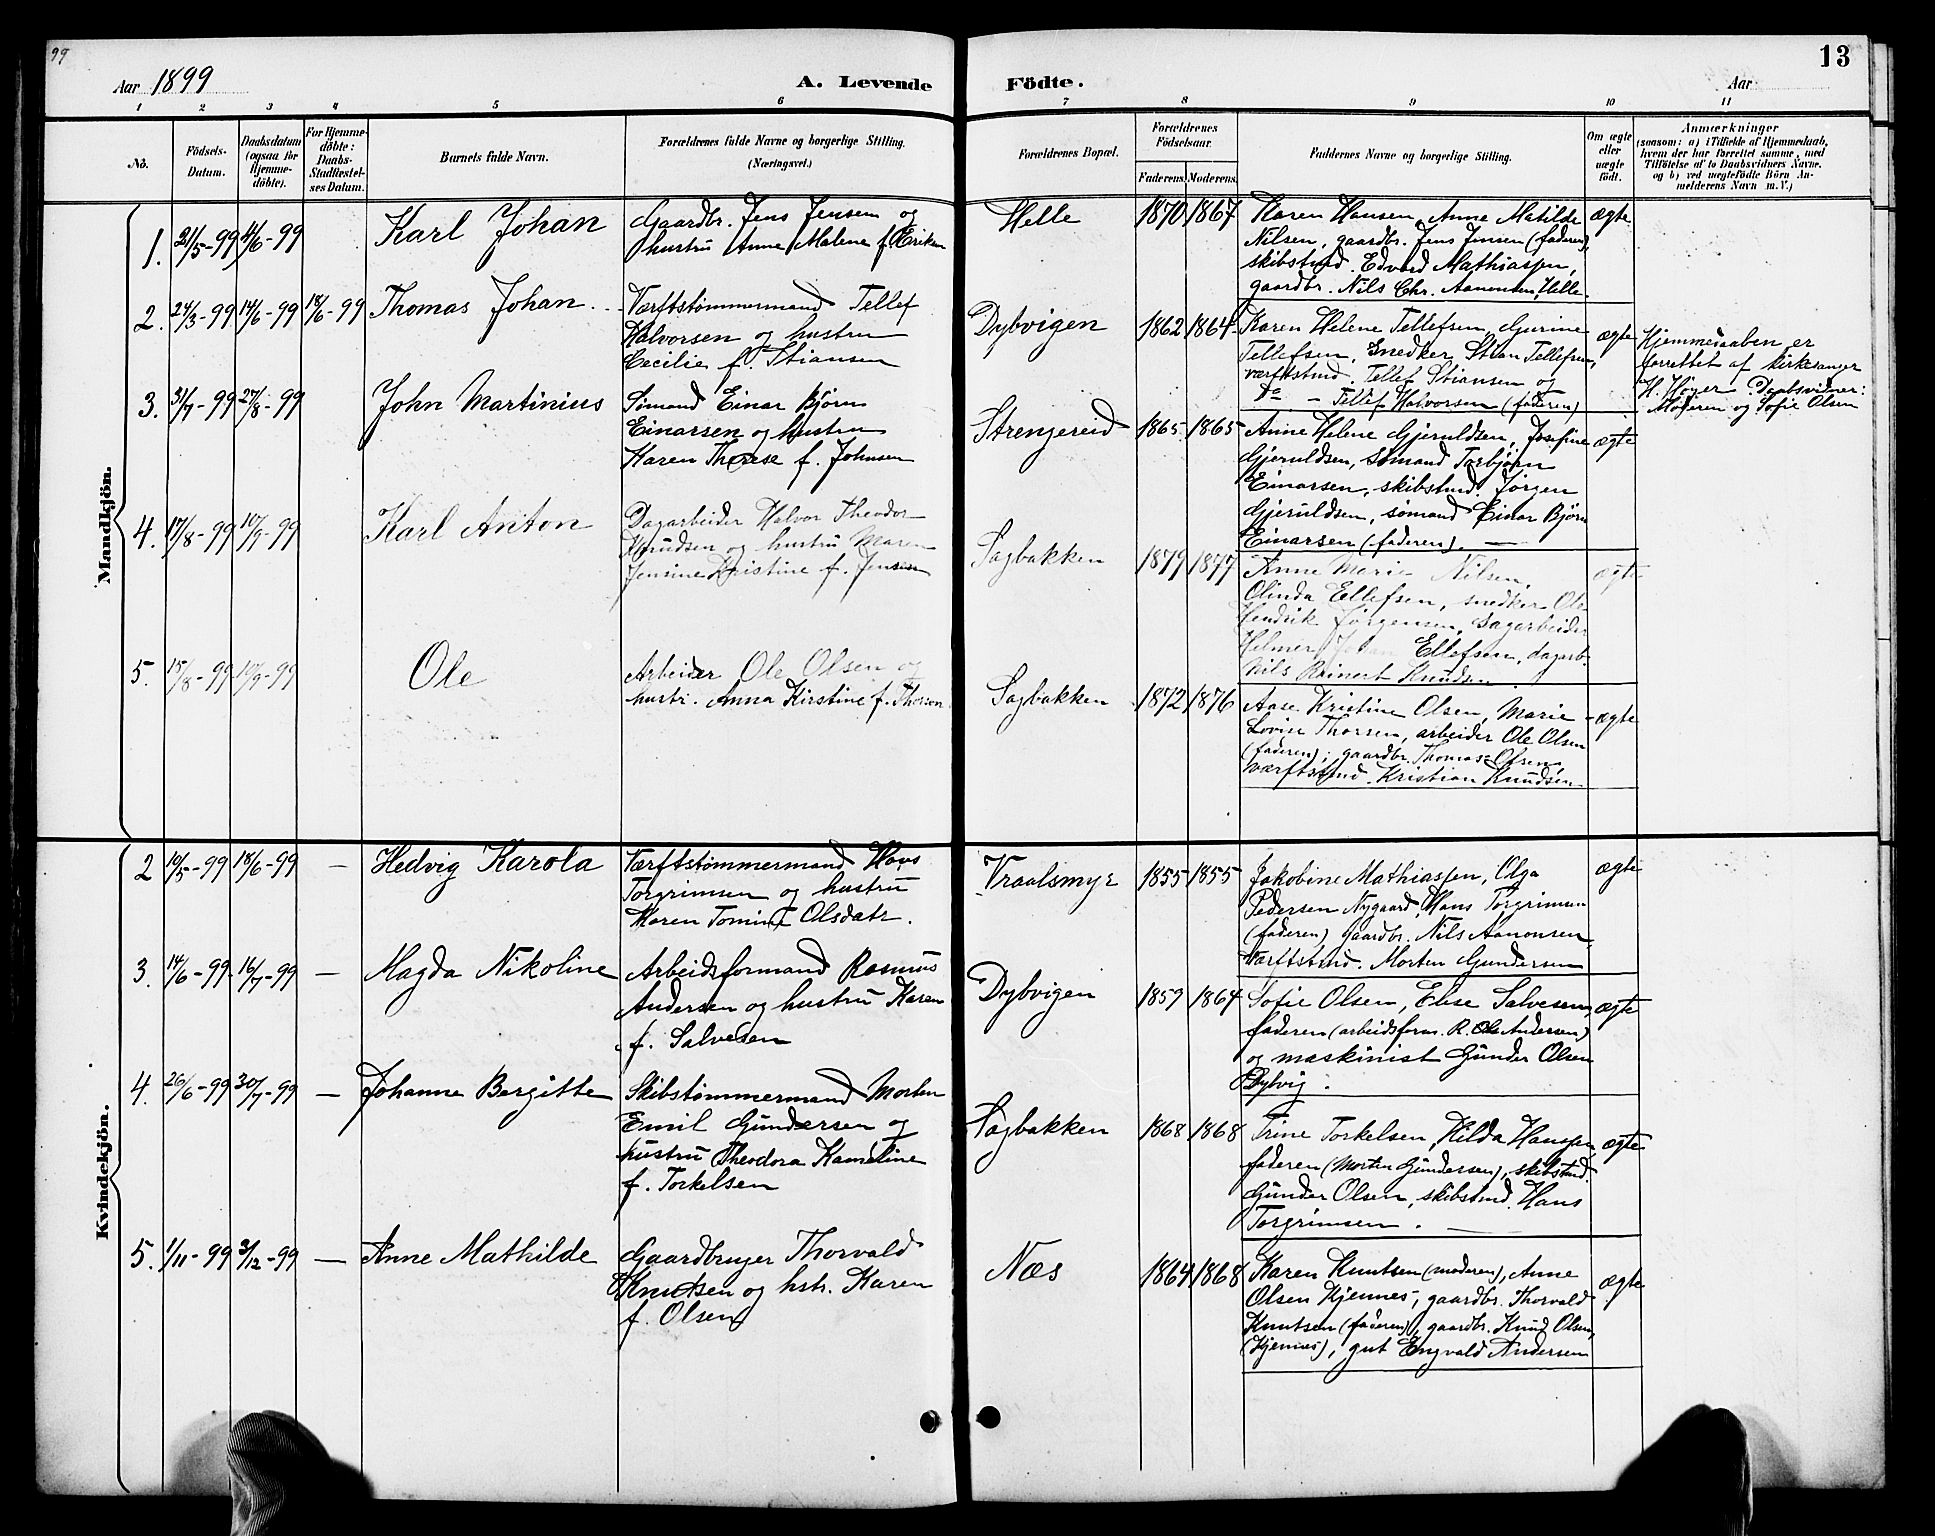 99
13
Aar 1899
A. Levende
Födte.
Aar
1 2 3 4 5 6 7 8 9 10 11
No.
Födsels-
Datum.
Daabsdatum
(ogsaa for
Hjemme-
döbte).
For Hjemme-
döbte:
Daabs-
Stadfestel-
ses Datum.
Barnets fulde Navn.
Forældrenes fulde Navne og borgerlige Stilling.
(Næringsvei.)
Forældrenes Bopæl.
Forældrenes
Födselsaar.
Faderens. Moderens.
Faddernes Navne og borgerlige Stilling.
Om ægte
eller
uægte
födt.
Anmærkninger
(saasom: a) i Tilfælde af Hjemmedaab,
hvem der har forrettet samme, med
Tilföielse af to Daabsvidners Navne.
og b) ved uægtefödte Börn An-
melderens Navn m. V.)
Mandkjön.
1. 21/5-99 4/6-99
Karl Johan
Gaardbr. Jens Jensen og
hustru Anne Malene f. Eriksen
Helle
1870 1867
Karen Hansen, Anne Matilde
Nilsen, gaardbr. Jens Jensen (faderen),
skibstmd. Edvard Mathiassen,
gaardbr. Nils Chr. Aanonsen, Helle.
ægte
2. 24/3-99 14/6-99 18/6-99
Thomas Johan
Værftstømmermand Tellef
Halvorsen og hustru
Cecilie f. Stiansen
Dybvigen
1862 1864
Karen Helene Tellefsen, Gurine
Tellefsen, Snedker Stian Tellefsen,
værftstmd. Tellef Stiansen og
Do - Tellef Halvorsen (faderen)
ægte
Hjemmedaaben er
forrettet af kirkesanger
H. Høyer. Daabsvidner:
Moderen og Sofie Olsen
3. 31/7-99 27/8-99
John Martinius
Sømand Einar Bjørn
Einarsen og hustru
Karen Therese f. Johnsen
Strengereid
1865 1865
Anne Helene Gjeruldsen, Josefine
Gjeruldsen, sømand Torbjørn
Einarsen, skibstmd. Jørgen
Gjeruldsen, sømand Einar Bjørn
Einarsen (faderen).
ægte
4. 17/8-99 10/9-99
Karl Anton
Dagarbeider Halvor Theodor
Knudsen og hustru Maren
Jensine Kristine f. Jensen
Sagbakken
1879 1877
Anne Marie Nilsen,
Olinda Ellefsen, snedker Ole
Hendrik Jørgensen, Dagarbeider
Helmer Johan Ellefsen, dagarb.
Nils Reinert Knudsen
ægte
5. 15/8-99 10/9-99
Ole
Arbeider Ole Olsen og
hustr. Anna Kirstine f. Thorsen
Sagbakken
1872 1876
Aase Kristine Olsen, Marie
Lovise Thorsen, arbeider Ole Olsen
(faderen), gaardbr. Thomas Olsen,
værftstmd. Kristian Knudsen
ægte
Kvindekjön.
2 10/5-99 18/6-99 -
Hedvig Karola
Værftstømmermand Hans
Torgrimsen og hustru
Karen Tomine Olsdatr.
Vraalsmyr
1855 1855
Jakobine Mathiassen, Olga
Pedersen Nygaard, Hans Torgrimsen
(faderen) gaardbr. Nils Aanonsen,
Værftstmd. Morten Gundersen
ægte
3. 14/6-99 16/7-99 -
Magda Nikoline
Arbeidsformand Rasmus
Andersen og hustru Karen
f. Salvesen
Dybvigen
1859 1864
Sofie Olsen, Else Salvesen,
faderen (arbeidsform. R. Ole Andersen)
og maskinist Gunder Olsen
Dybvig.
ægte
4. 26/6-99 30/7-99 -
Johanne Bergitte
Skibstømmermand Morten
Emil Gundersen og
hustru Theodora Kameline
f. Torkelsen
Sagbakken
1868 1868
Trine Torkelsen, Hilda Hanssen,
faderen (Morten Gundersen), skibstmd.
Gunder Olsen, skibstmd. Hans
Torgrimsen.
ægte
5. 1/11-99 3/12-99 -
Anne Mathilde
Gaardbruger Thorvald
Knutsen og hstr. Karen
f. Olsen
Næs
1864 1868
Karen Knutsen (moderen), Anne
Olsen Kjennes, gaardbr. Thorvald
Knutsen (faderen), gaardbr. Knud Olsen,
(Kjennes), gut Engvald Andersen
ægte